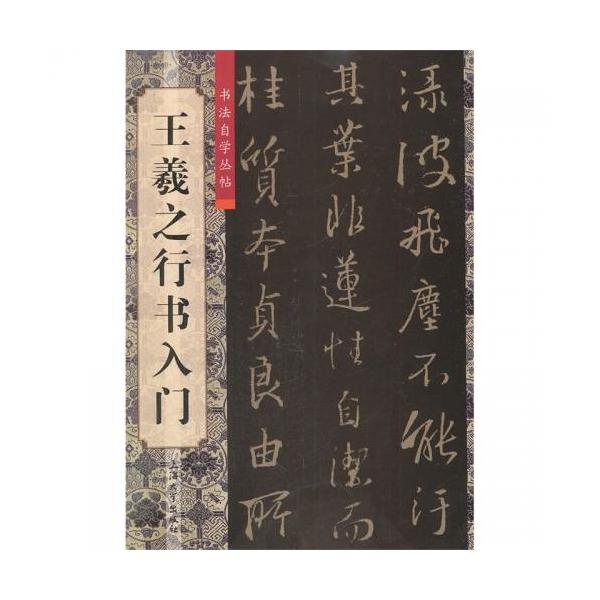 渌波飛塵不能汙
其葉非蓮性自潔而
桂質本貞良由所
书法自学丛帖
王羲之行书入门
上海大学出版社